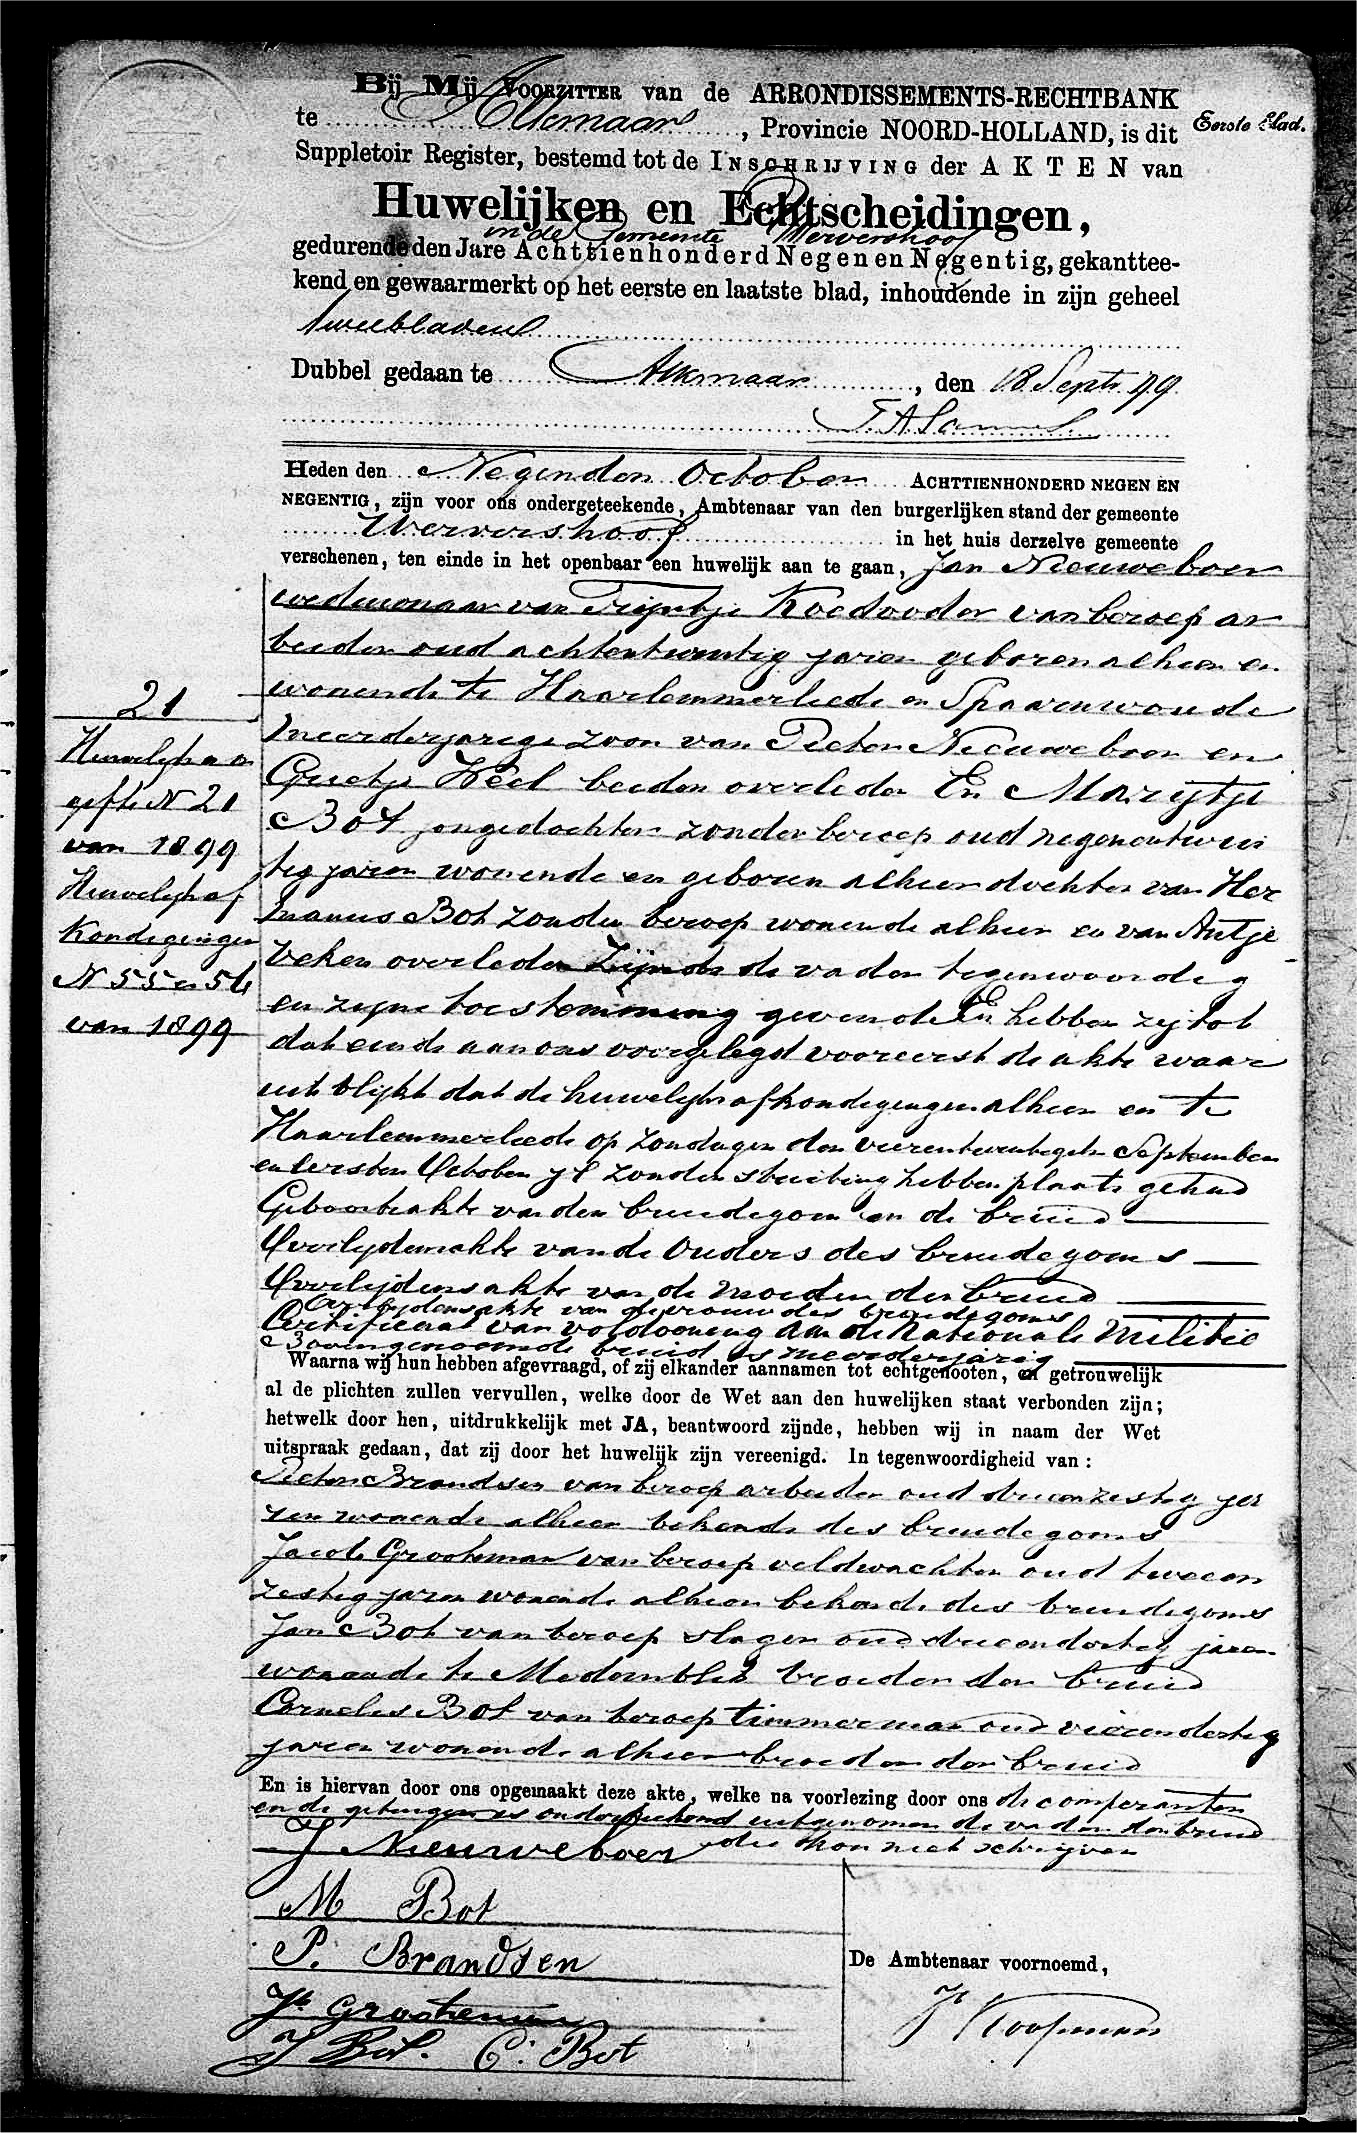 Bij Mij Voorzitter van de ARRONDISSEMENTS-RECHTBANK
te Alkmaar, Provincie NOORD-HOLLAND, is dit
Eerste Blad.
Suppletoir Register, bestemd tot de INSCHRIJVING der AKTEN van
Huwelijken en Echtscheidingen,
in de Gemeente Wervershoof
gedurende den Jare Achttienhonderd Negen en Negentig, gekanttee-
kend en gewaarmerkt op het eerste en laatste blad, inhoudende in zijn geheel
twee bladen
Dubbel gedaan te Alkmaar, den 18 Septr. 99.
Heden den Negenden October ACHTTIENHONDERD NEGEN EN
NEGENTIG, zijn voor ons ondergeteekende, Ambtenaar van den burgerlijken stand der gemeente
Wervershoof in het huis derzelve gemeente
verschenen, ten einde in het openbaar een huwelijk aan te gaan, Jan Nieuweboer
weduwnaar van Trijntje Koedooder van beroep ar
beider oud achtentwintig jaren geboren alhier en
wonende te Haarlemmerliede en Spaarnwoude
meerderjarige zoon van Pieter Nieuweboer en
Grietje Heel beiden overleden En Marijtje
Bot jongedochter zonder beroep oud negenentwin
tig jaren wonende en geboren alhier dochter van Her
manus Bot zonder beroep wonende alhier en van Antje
Veken overleden Zijnde de vader tegenwoordig
en zijne toestemming gevende En hebben zij tot
dat einde aan ons voorgelegd vooreerst de akte waar
uit blijkt dat de huwelijksafkondigingen alhier en te
Haarlemmerliede op zondagen den vierentwintigsten September
en eersten October jl zonder stuiting hebben plaats gehad
Geboorteakte van den bruidegom en de bruid
Overlijdensakte van de Ouders des bruidegoms
Overlijdensakte van de moeder der bruid
Overlijdensakte van de vrouw des bruidegoms
Certificaat van voldoening aan de Nationale Militie
Bovengenoemde bruid is meerderjarig
Waarna wij hun hebben afgevraagd, of zij elkander aannamen tot echtgenooten, en getrouwelijk
al de plichten zullen vervullen, welke door de Wet aan den huwelijken staat verbonden zijn;
hetwelk door hen, uitdrukkelijk met JA, beantwoord zijnde, hebben wij in naam der Wet
uitspraak gedaan, dat zij door het huwelijk zijn vereenigd. In tegenwoordigheid van:
Pieter Brandsen van beroep arbeider oud drieenzestig ja
ren wonende alhier bekende des bruidegoms
Jacob Grooteman van beroep veldwachter oud tweeen
zestig jaren wonende alhier bekende des bruidegoms
Jan Bot van beroep slager oud drieendertig jaren
wonende te Medemblik broeder der bruid
Cornelis Bot van beroep timmerman oud vierendertig
jaren wonende alhier broeder der bruid
En is hiervan door ons opgemaakt deze akte, welke na voorlezing door ons de comparanten
en de getuigen is onderteekend uitgenomen de vader der bruid
J Nieuweboer die kon niet schrijven
M Bot
P. Brandsen
Jb Grooteman
J Bot. C. Bot
De Ambtenaar voornoemd,
Jb Koopman
21
Huwelijksaan
gifte N 21
van 1899
Huwelijksaf
Kondigingen
N 55 en 56
van 1899